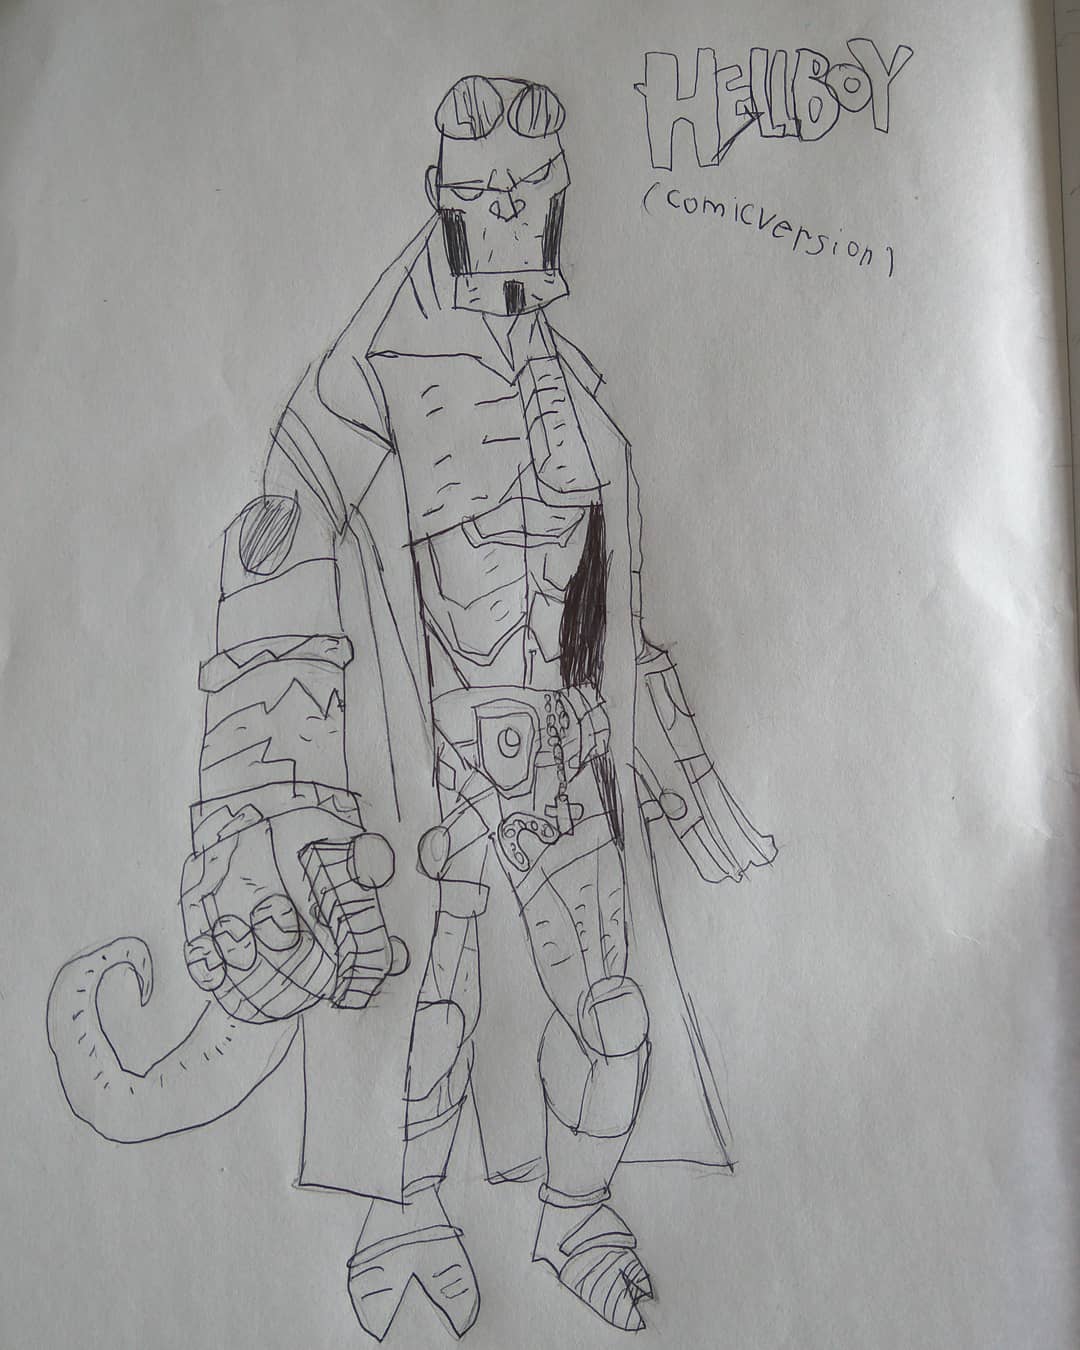 HELLBOY
(comicversion)